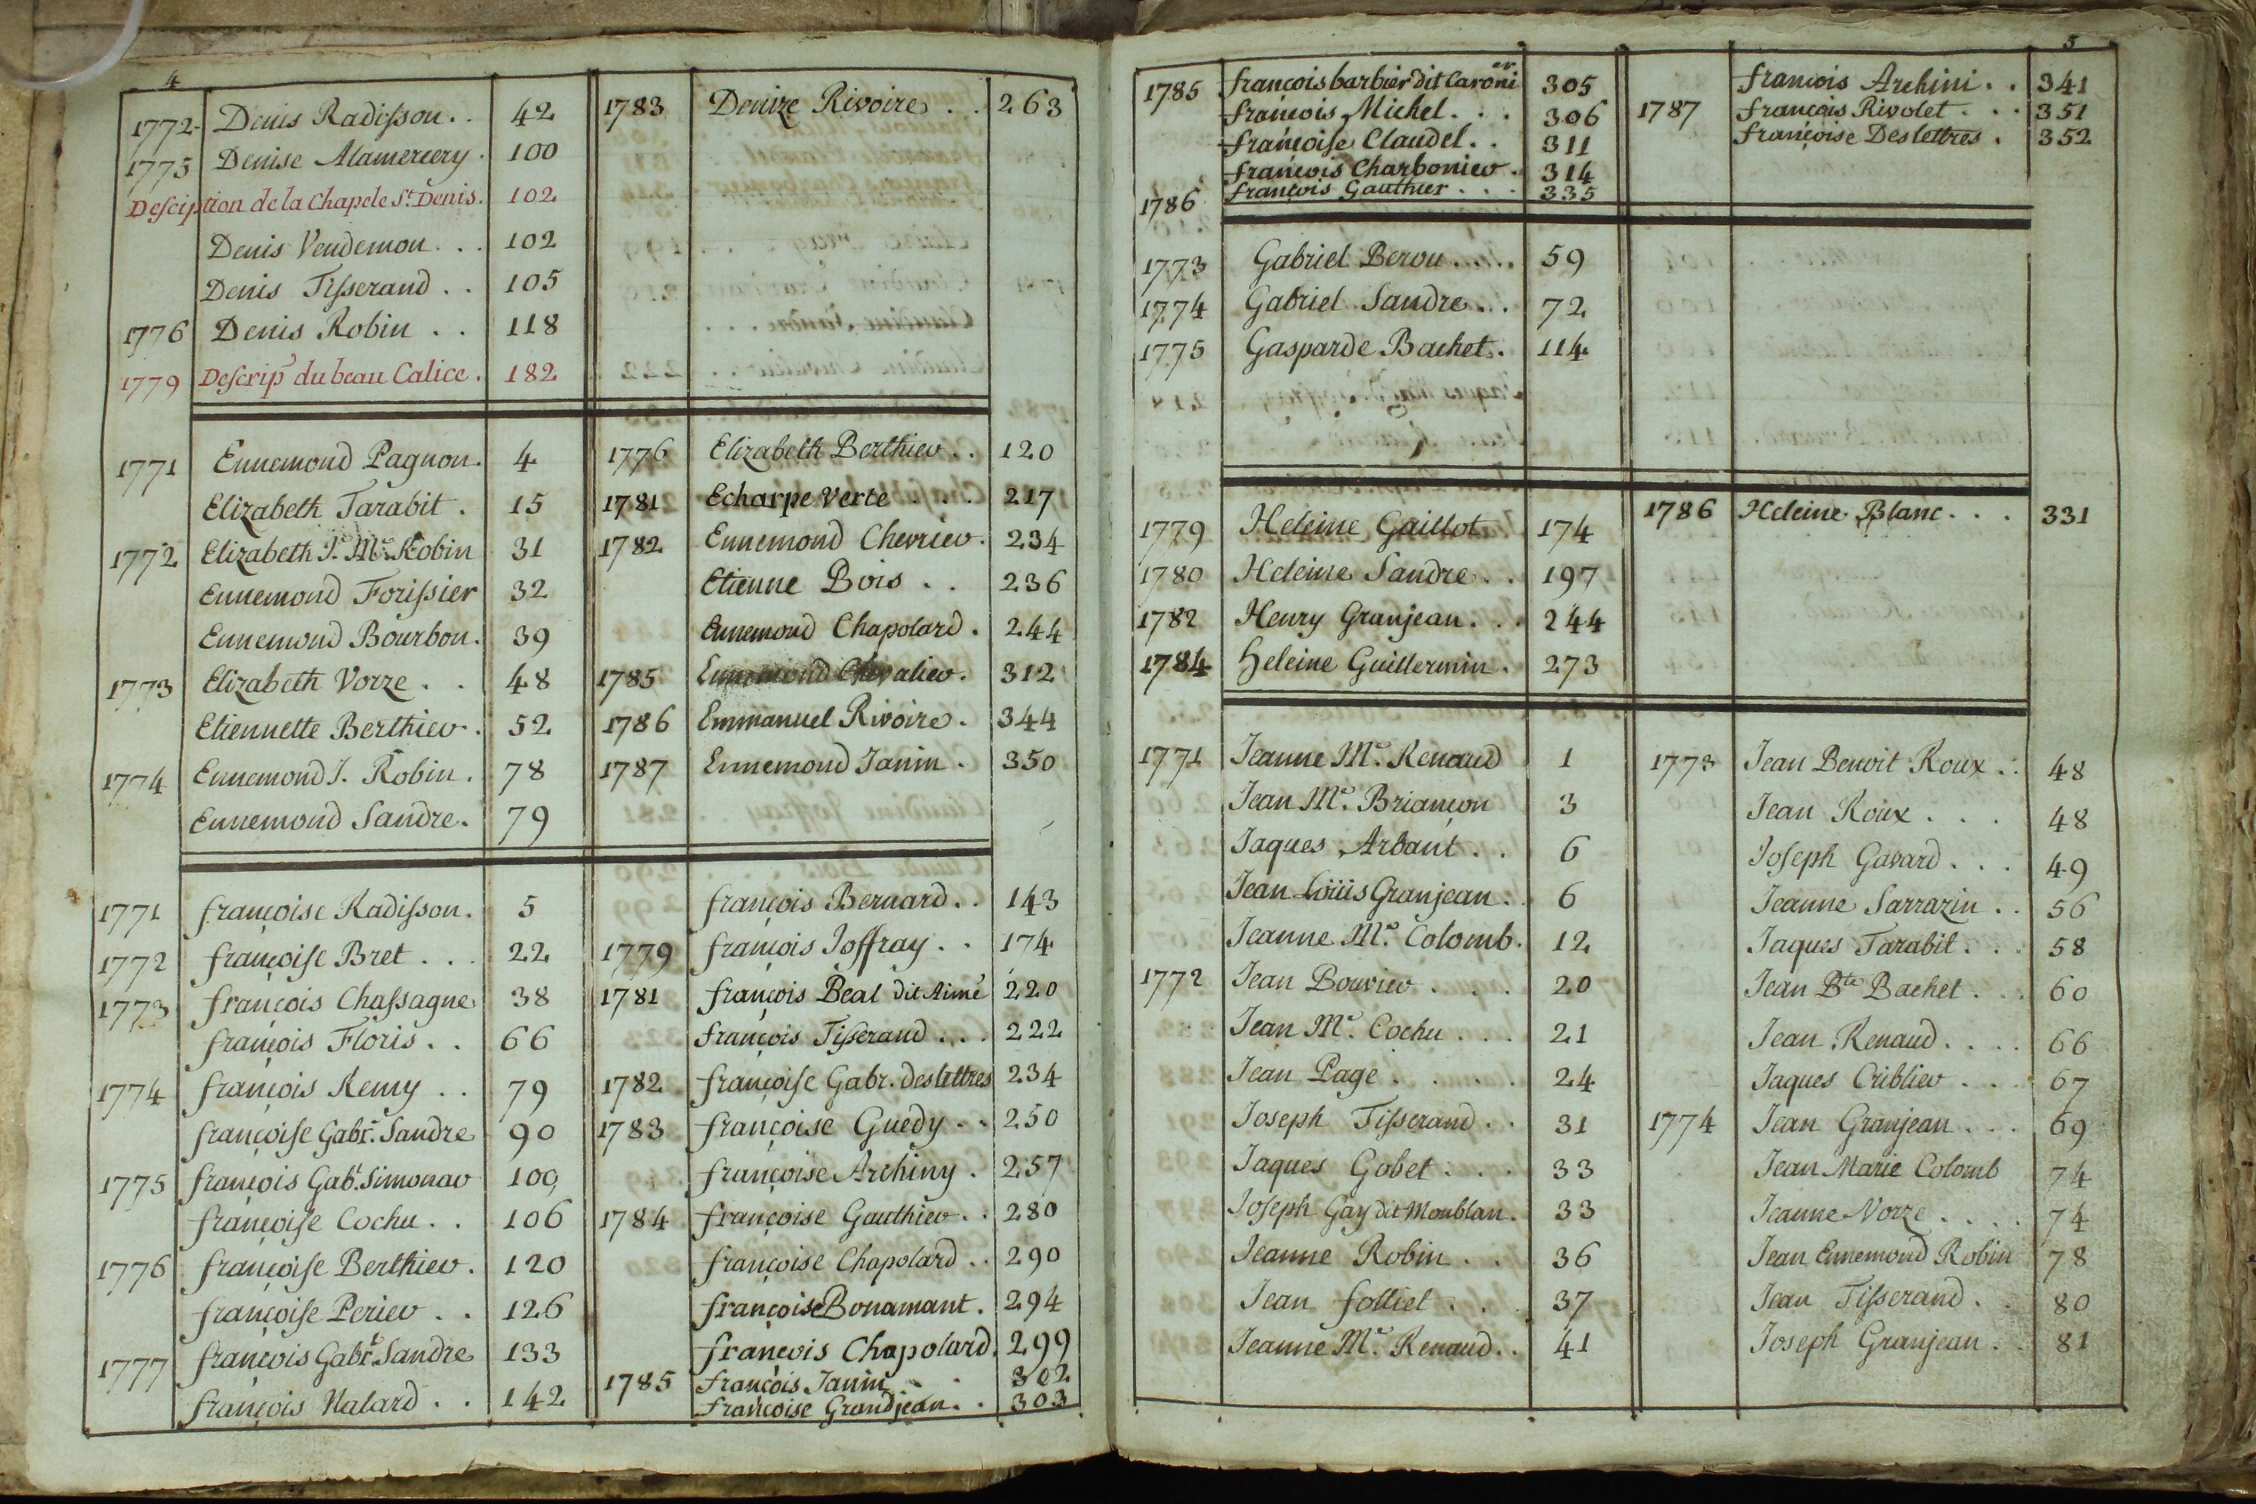 4
1772 Denis Radisson . . 42
1775 Denise Alamercery . 100
Desciption de la Chapele St. Denis. 102
Denis Vendemon . . . 102
Denis Tisserand . . 105
1776 Denis Robin . . 118
1779 Descrip du beau Calice . 182
1783 Denize Rivoire . . 263
1771 Ennemond Pagnon. 4
Elizabeth Tarabit . 15
1772 Elizabeth J. Me. Robin 31
Ennemond Forissier 32
Ennemond Bourbon. 39
1773 Elizabeth Vorze . . 48
Etiennette Berthier . 52
1774 Ennemond J. Robin . 78
Ennemond Sandre. 79
1776 Elizabeth Berthier . . 120
1781 Echarpe Verte . . . 217
1782 Ennemond Chevrier. 234
Etienne Bois . . 236
Ennemond Chapolard . 244
1785 Ennemond Chevalier. 312
1786 Emmanuel Rivoire . 344
1787 Ennemond Janin . 350
1771 françoise Radisson . 5
1772 françoise Bret . . . 22
1773 françois Chassagne 38
françois Floris . . 66
1774 françois Remy . . 79
françoise Gabr. Sandre 90
1775 françois Gab. Simonar 100
françoise Cochu . . 106
1776 françoise Berthier . 120
françoise Perier . . 126
1777 françois Gabr. Sandre 133
françois Nalard . . 142
françois Bernard . . 143
1779 françois Joffray . . 174
1781 françois Beal dit Aimé 220
françois Tisserand . . . 222
1782 françoise Gabr. deslettres 234
1783 françoise Guedy . . 250
françoise Archiny . 257
1784 françoise Gauthier . . 280
françoise Chapolard . . 290
françoise Bonamant . 294
françois Chapolard. 299
1785 françois Janin . . 302
françoise Grandjean . . 303
5
1785 françois barbier dit Caronier 305
françois Michel . . . 306
françoise Claudel . . 311
françois Charbonier . 314
1786 françois Gauthier . . . 335
françois Archini . . 341
1787 françois Rivolet . . . 351
françoise Deslettres . 352
1773 Gabriel Berou . . . . 59
1774 Gabriel Sandre . . . 72
1775 Gasparde Bachet . 114
1779 Heleine Gaillot 174
1780 Heleine Sandre . . 197
1782 Henry Granjean . . . 244
1784 Heleine Guillermin . 273
1786 Heleine Blanc . . . 331
1771 Jeanne Me. Renaud 1
Jean Me. Briançon 3
Jaques Arbaut . . 6
Jean Loüis Granjean . . 6
Jeanne Me. Colomb. 12
1772 Jean Bouvier . . . 20
Jean Me. Cochu . . . 21
Jean Page . . . . 24
Joseph Tisserand . . 31
Jaques Gobet . . . 33
Joseph Gay dit Monblan . 33
Jeanne Robin . . . 36
Jean folliet . . . 37
Jeanne Me. Renaud . . 41
1773 Jean Benoit Roux . . 48
Jean Roux . . . 48
Joseph Gavard . . . 49
Jeanne Sarrazin . . 56
Jaques Tarabit . . . 58
Jean Bte Bachet . . . 60
Jean Renaud . . . . 66
Jaques Criblier . . . 67
1774 Jean Granjean . . . 69
Jean Marie Colomb 74
Jeanne Vorze . . . . 74
Jean Ennemond Robin 78
Jean Tisserand . . 80
Joseph Granjean . . 81